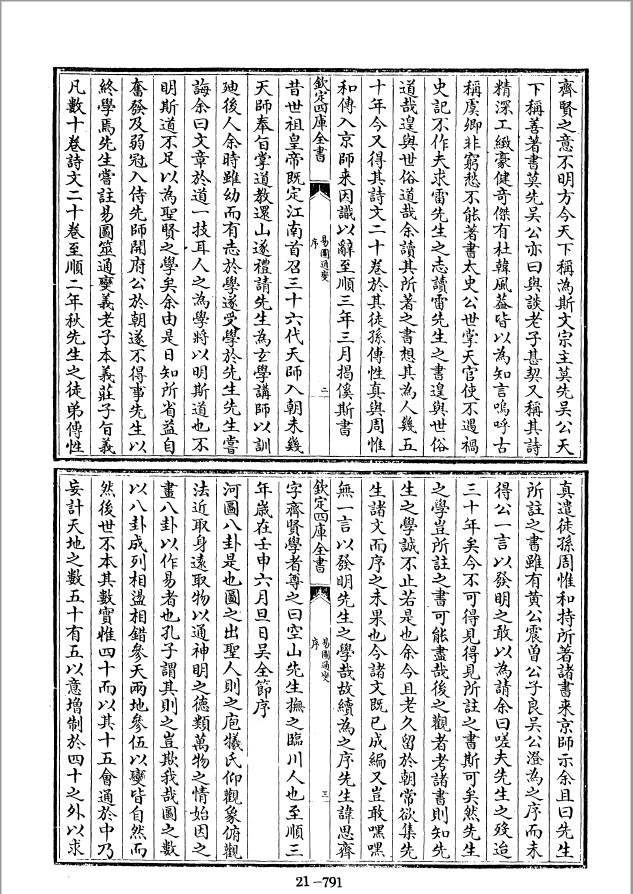 齊賢之意不明方今天下稱為斯文宗主莫先吳公天
下稱善著書莫先吳公亦曰與談老子甚契又稱其詩
精深工緻豪健奇傑有杜韓風葢皆以為知言嗚呼古
稱虞卿非窮愁不能著書太史公世掌天官使不遇禍
史記不作夫求雷先生之志讀雷先生之書遑與世俗
道哉遑與世俗道哉余讀其所著之書想其為人幾五
十年今又得其詩文二十卷於其徒孫傅性真與周惟
和傳入京師来因識以辭至順三年三月揭傒斯書
欽定四庫全書
易圖通變
序
二
昔世祖皇帝既定江南首召三十六代天師入朝未幾
天師奉㫖掌道教還山遂禮請先生為玄學講師以訓
廸後人余時雖幼而有志於學遂受學於先生先生嘗
誨余曰文章於道一技耳人之為學將以明斯道也不
明斯道不足以為聖賢之學矣余由是日知所省益自
奮發及弱冠入侍先師開府公於朝遂不得事先生以
終學焉先生嘗註易圖筮通變義老子本義莊子㫖義
凡數十卷詩文二十卷至順二年秋先生之徒弟傅性
真遣徒孫周惟和持所著諸書来京師示余且曰先生
所註之書雖有黄公震曾公子良吳公澄為之序而未
得公一言以發明之敢以為請余曰嗟夫先生之殁迨
三十年矣今不可得見得見所註之書斯可矣然先生
之學豈所註之書可能盡哉後之觀者考諸書則知先
生之學誠不止若是也余今且老久留於朝常欲集先
生諸文而序之未果也今諸文既已成編又豈敢嘿嘿
無一言以發明先生之學哉故續為之序先生諱思齊
欽定四庫全書
易圖通變
序
三
字齊賢學者尊之曰空山先生撫之臨川人也至順三
年歳在壬申六月旦日吳全節序
河圖八卦是也圖之出聖人則之庖犧氏仰觀象俯觀
法近取身逺取物以通神明之德類萬物之情始因之
畫八卦以作易者也孔子謂其則之豈欺我哉圖之數
以八卦成列相盪相錯參天兩地參伍以變皆自然而
然後世不本其數實惟四十而以其十五會通於中乃
妄計天地之數五十有五以意増制於四十之外以求
21-791